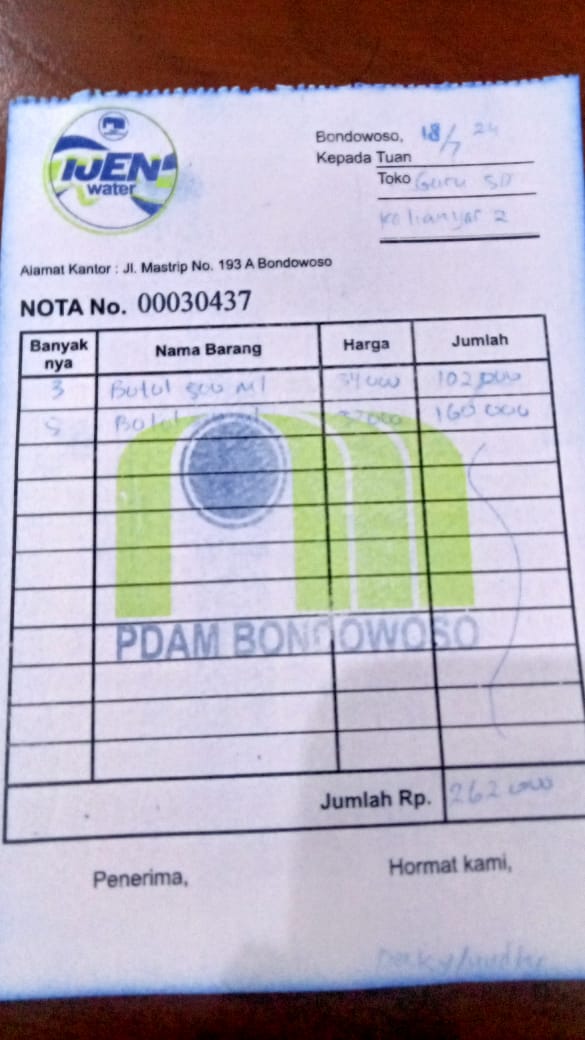 IJEN
water
Bondowoso, 18/7 24
Kepada Tuan
Toko Guru SD
Kalianyar 2
Alamat Kantor : Jl. Mastrip No. 193 A Bondowoso
NOTA No. 00030437
Banyak nya Nama Barang Harga Jumlah
3 Botol 500 Ml 34000 102,000
5 Botol 160 000
PDAM BONDOWOSO
Jumlah Rp. 262 000
Penerima, Hormat kami,